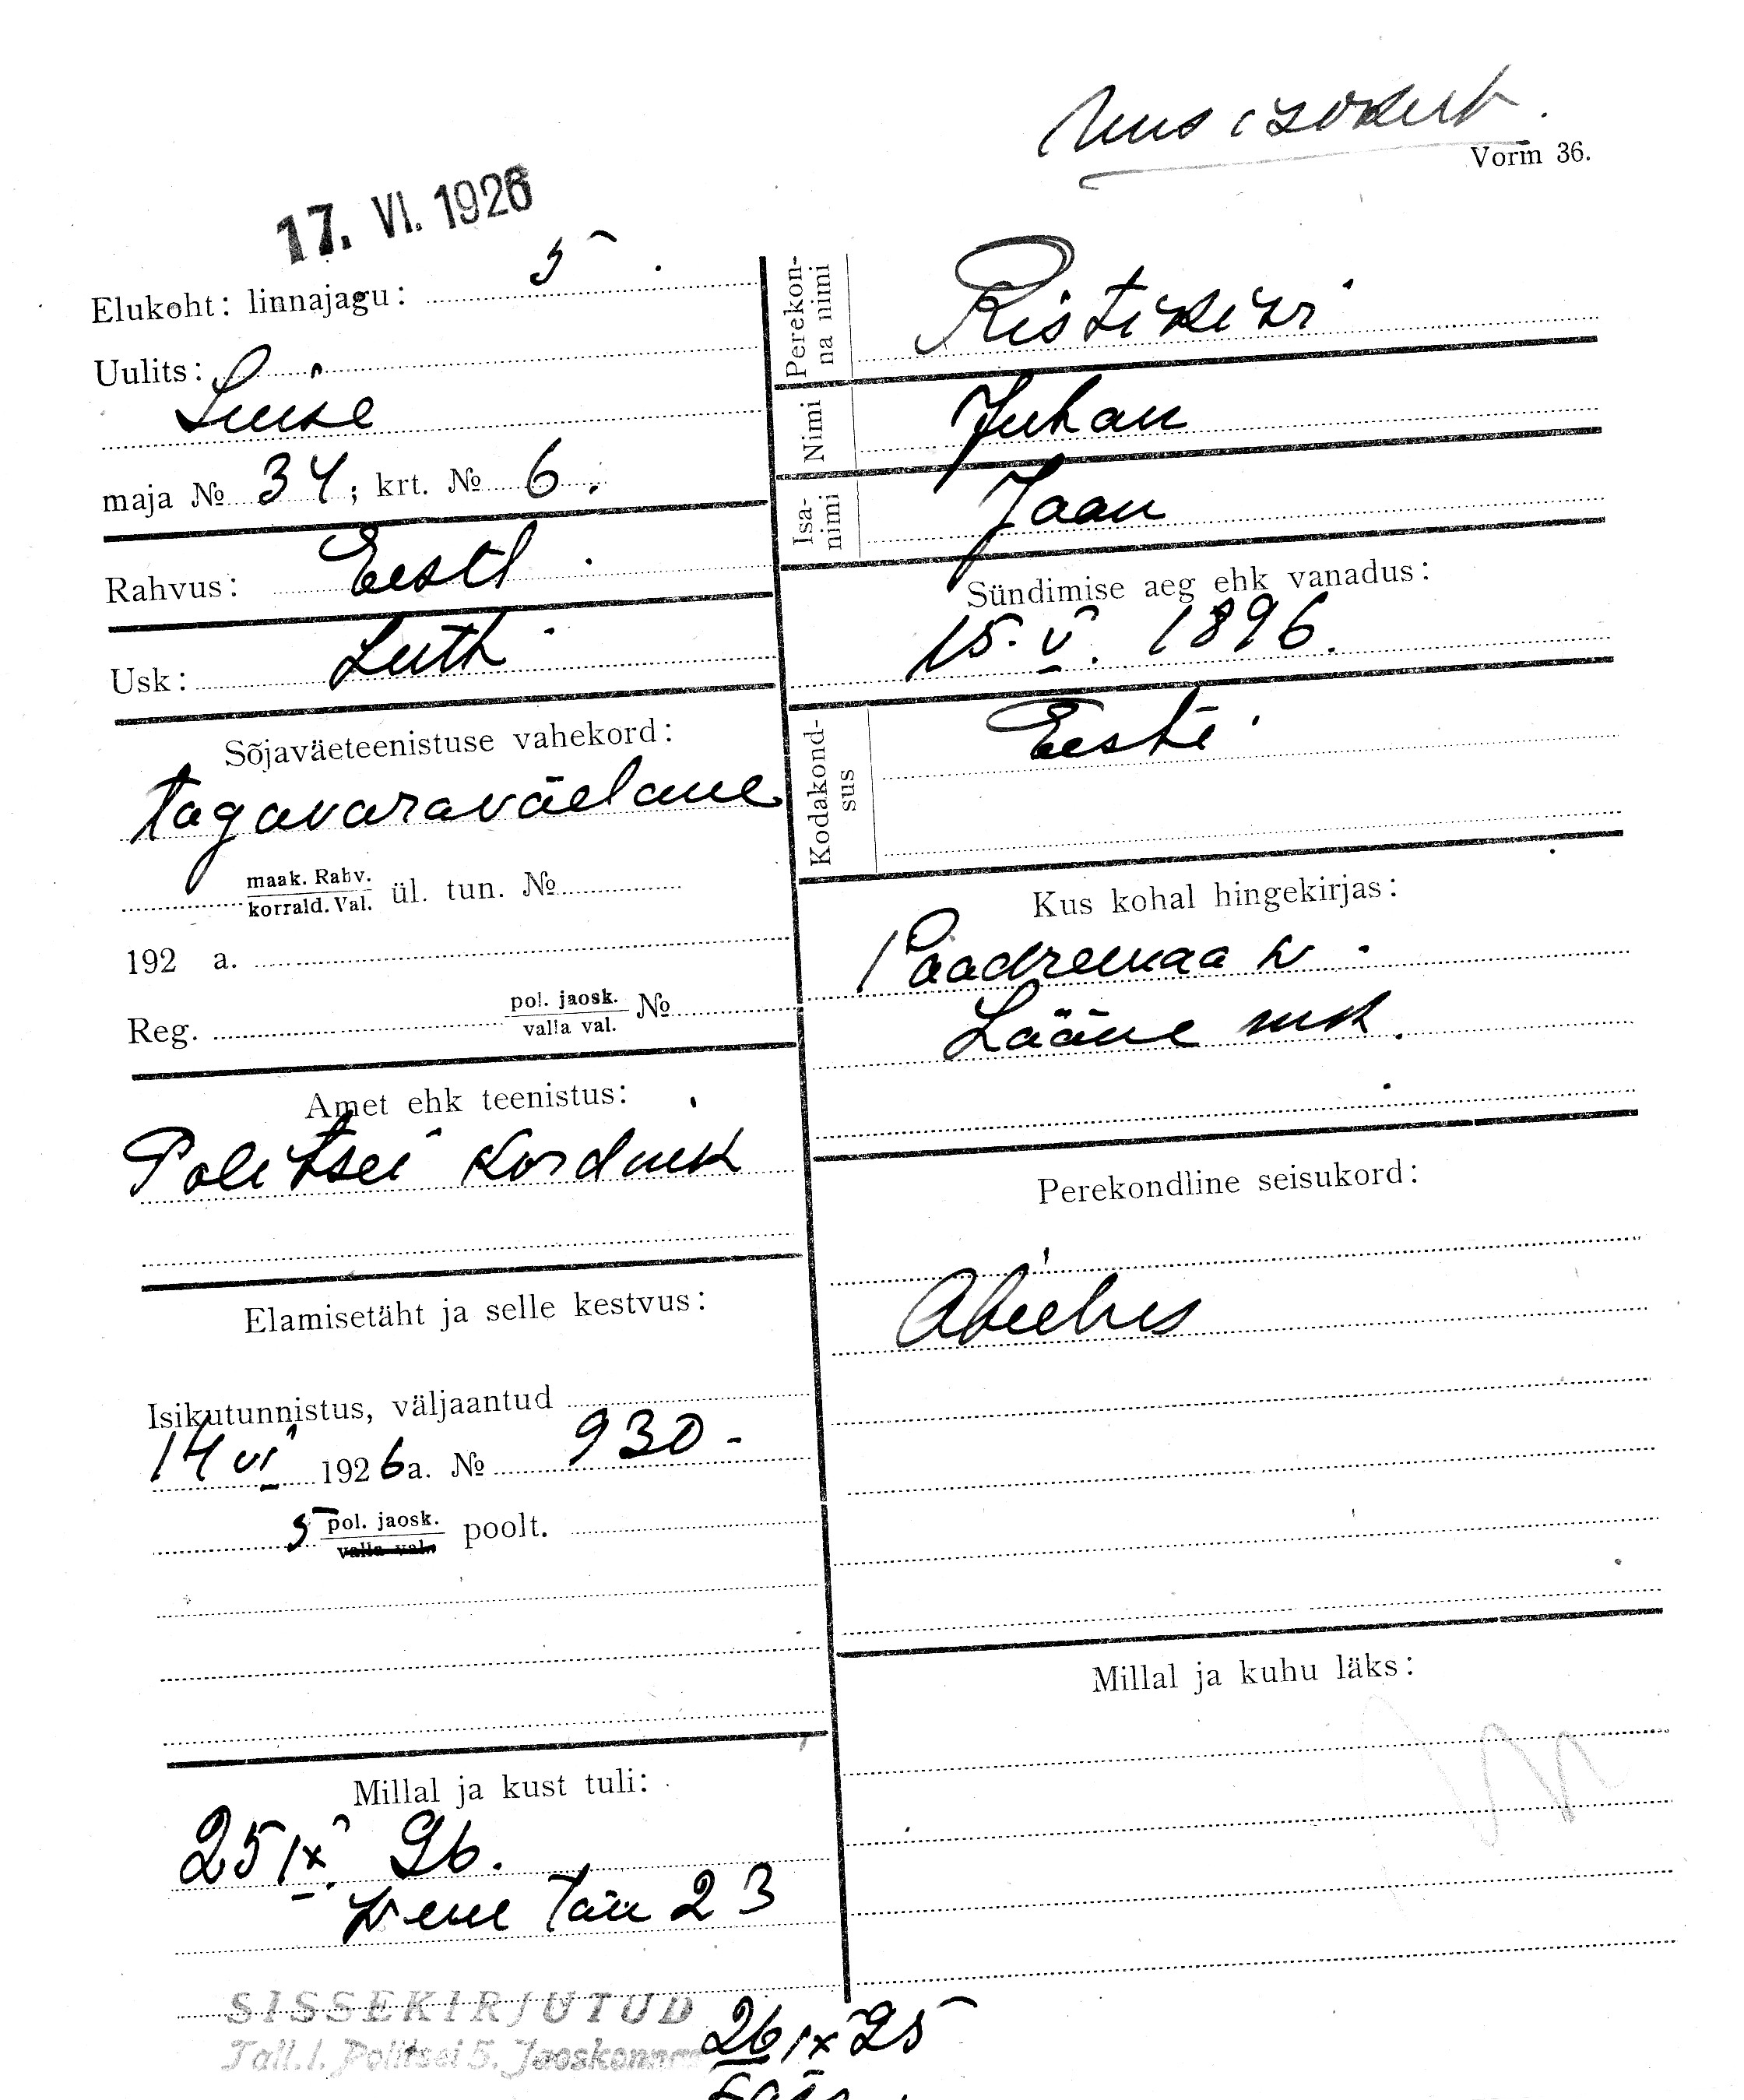 Uus
Vorm 36.
17. VI. 1926
Elukoht: linnajagu: 5
Uulits:
Luise
maja № 34; krt. № 6.
Rahvus: Eesti
Usk: Luth
Sõjaväeteenistuse vahekord:
tagavaraväelane
maak. Rahv.
korrald. Val. ül. tun. №
192 a.
Reg. pol. jaosk. №
valla val.
Amet ehk teenistus:
Politsei kordnik
Elamisetäht ja selle kestvus:
Isikutunnistus, väljaantud
14 VI 1926 a. № 930 -
5 pol. jaosk. poolt.
valla val.
Millal ja kust tuli:
25 IX 26.
Wene tän 23
SISSEKIRJUTUD
Tall. l. Politsei 5. Jaoskonnas
26 IX 25
Perekon-
na nimi
Ristikivi
Nimi Juhan
Isa-
nimi Jaan
Sündimise aeg ehk vanadus:
15. V. 1896.
Kodakond-
sus
Eesti
Kus kohal hingekirjas:
Paadremaa w.
Lääne mk.
Perekondline seisukord:
Abielus
Millal ja kuhu läks: